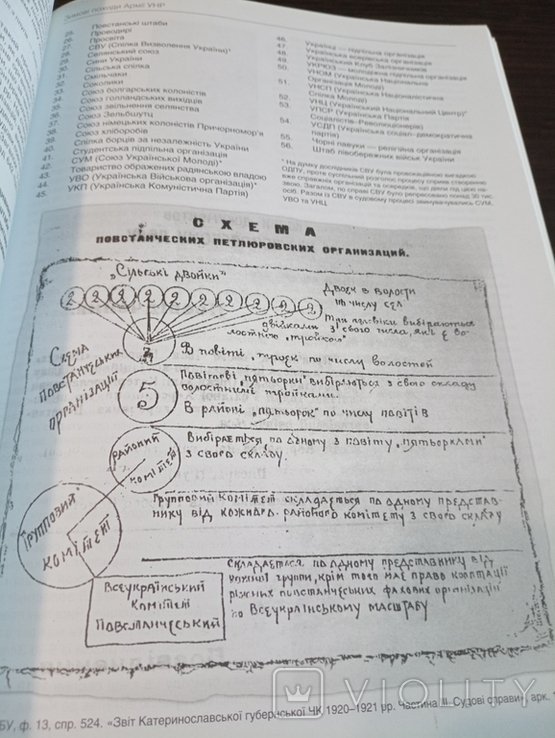 Зимові походи Армії УНР
25. Повстанські штаби
26. Проводирі
27. Просвіта
28. СВУ (Спілка Визволення України)*
29. Селянський союз
30. Сини України
31. Сільська спілка
32. Смільчаки
33. Соколики
34. Союз болгарських колоністів
35. Союз голландських вихідців
36. Союз звільнення селянства
37. Союз Зельбшутц
38. Союз німецьких колоністів Причорномор'я
39. Союз хліборобів
40. Спілка борців за незалежність України
41. Студентська підпільна організація
42. СУМ (Союз Української Молоді)*
43. Товариство ображених радянською владою
44. УВО (Українська Військова організація)*
45. УКП (Українська Комуністична Партія)
46. Україна — підпільна організація
47. Українська козарська організація
48. Український Клуб Залізничників
49. УКРЮЗ — молодіжна підпільна організація
50. УНОМ (Українська Національна
Організація Молоді)
51. УНСП (Українська Націоналістична
Спілка Молоді)
52. УНЦ (Український Національний Центр)*
53. УПСР (Українська Партія
Соціалістів-Революціонерів)
54. УСДП (Українська соціал-демократична
партія)
55. Чорні павуки — релігійна організація
56. Штаб лівобережних військ України
* На думку дослідників СВУ була провокаційною вигадкою
ОДПУ, проте суспільний розголос процесу сприяв створенню
вже справжніх організацій й осередків, що діяли під цією на-
звою. Загалом, по справі СВУ було репресовано понад 30 тис.
осіб. Разом із СВУ в судовому процесі звинувачувались СУМ,
УВО та УНЦ.
СХЕМА
ПОВСТАНЧЕСКИХ ПЕТЛЮРОВСКИХ ОРГАНИЗАЦИЙ.
„Сільські двойки"
2 2 2 2 2 2 2 2 2 2
Двоєк в волости
по числу сел
Три чоловіки вибіраються
двійками з свого числа, які є во-
лостною „тройкою"
Схема
повстанчеських
організацій
3
В повіті „троєк" по числу волостей
5
Повітові „пятьорки" вибіраються з свого складу
волостними тройками.
В районі „пятьорок" по числу повітів
Районий
комітет
Вибирається по одному з повіту „пятьорками"
з свого складу.
Групповий
комітет
Групповий комітет складається по одному представ-
нику від кожного районого комітету з свого складу
Всеукраїнський
комітет
Повстанческий
Складається по одному представнику від
кожної групи, крім того має право кооптації
ріжних повстанческих фахових організацій
по Всеукраїнському масштабу
VIOLITY
БУ, ф. 13, спр. 524. «Звіт Катеринославської губернської ЧК 1920–1921 рр. Частина II. Судові справи», арк.